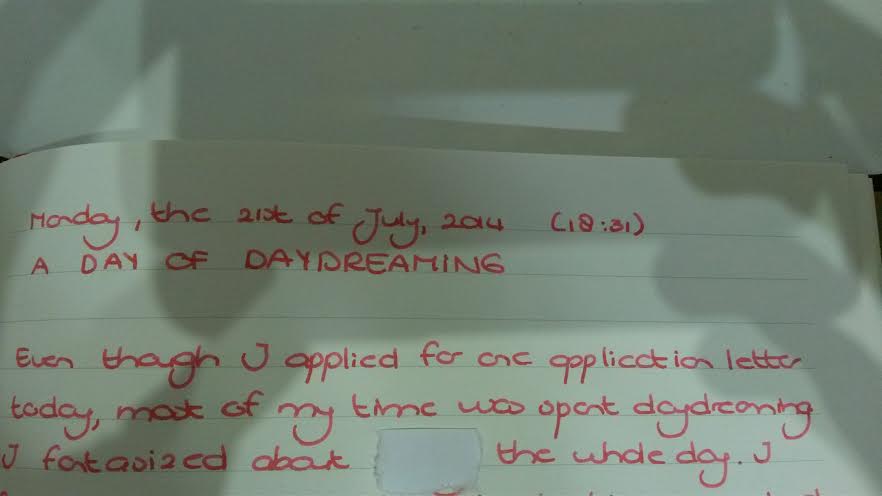 Monday, the 21st of July, 2014 (18:31)
A DAY OF DAYDREAMING
Even though I applied for one application letter
today, most of my time was spent daydreaming
I fantasized about the whole day. I